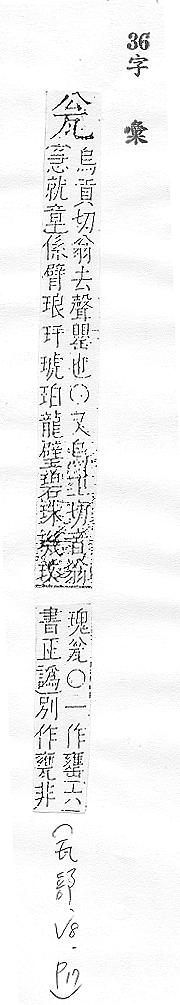 36
字彙
瓮
烏貢切翁去聲罌也○又烏紅切音翁
急就章係臂琅玕琥珀龍璧碧珠璣玫
瑰瓮○一作罋六
書正譌別作甕非
(瓦部.V8.P17)